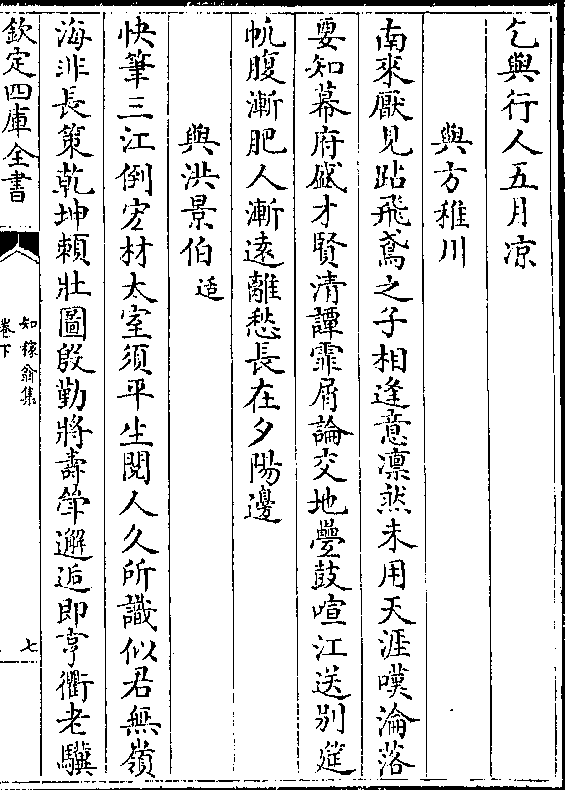 乞與行人五月凉
與方稚川
南來厭見跕飛鳶之子相逢意凛然未用天涯嘆淪落
要知幕府盛才賢清譚霏屑論交地疊鼓喧江送別筵
帆腹漸肥人漸遠離愁長在夕陽邊
與洪景伯适
快筆三江倒宏材太室須平生閱人久所識似君無嶺
海非長策乾坤頼壯圖殷勤將壽斝邂逅即亨衢老驥
欽定四庫全書
知稼翁集
卷下
七